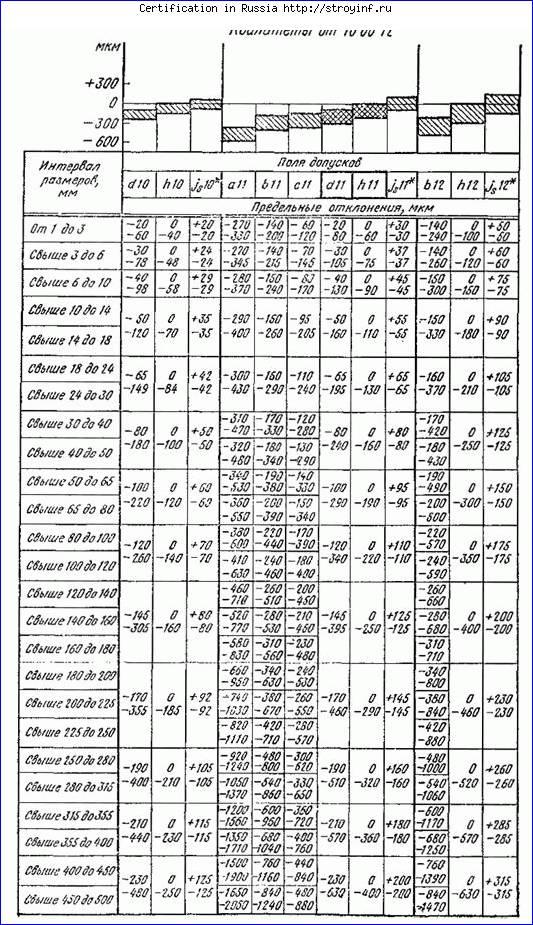 Certification in Russia http://stroyinf.ru
Квалитеты от 10 до 12
мкм
+300
0
-300
-600
Интервал размеров, мм
Поля допусков
d10 h10 js10* a11 b11 c11 d11 h11 js11* b12 h12 js12*
Предельные отклонения, мкм
От 1 до 3 -20 0 +20 -270 -140 -60 -20 0 +30 -140 0 +50
-60 -40 -20 -330 -200 -120 -80 -60 -30 -240 -100 -50
Свыше 3 до 6 -30 0 +24 -270 -140 -70 -30 0 +37 -140 0 +60
-78 -48 -24 -345 -215 -145 -105 -75 -37 -260 -120 -60
Свыше 6 до 10 -40 0 +29 -280 -150 -80 -40 0 +45 -150 0 +75
-98 -58 -29 -370 -240 -170 -130 -90 -45 -300 -150 -75
Свыше 10 до 14
-50 0 +35 -290 -150 -95 -50 0 +55 -150 0 +90
-120 -70 -35 -400 -260 -205 -160 -110 -55 -330 -180 -90
Свыше 14 до 18
Свыше 18 до 24
-65 0 +42 -300 -160 -110 -65 0 +65 -160 0 +105
-149 -84 -42 -430 -290 -240 -195 -130 -65 -370 -210 -105
Свыше 24 до 30
Свыше 30 до 40 -310 -170 -120 -170
-470 -330 -280 -420
-80 0 +50 -80 0 +80 0 +125
-180 -100 -50 -240 -160 -80 -250 -125
Свыше 40 до 50 -320 -180 -130 -180
-480 -340 -290 -430
Свыше 50 до 65 -340 -190 -140 -190
-530 -380 -330 -490
-100 0 +60 -100 0 +95 0 +150
-220 -120 -60 -290 -190 -95 -300 -150
Свыше 65 до 80 -360 -200 -150 -200
-550 -390 -340 -500
Свыше 80 до 100 -380 -220 -170 -220
-600 -440 -390 -570
-120 0 +70 -120 0 +110 0 +175
-260 -140 -70 -340 -220 -110 -350 -175
Свыше 100 до 120 -410 -240 -180 -240
-630 -460 -400 -590
Свыше 120 до 140 -460 -260 -200 -260
-710 -510 -450 -660
Свыше 140 до 160 -145 0 +80 -520 -280 -210 -145 0 +125 -280 0 +200
-305 -160 -80 -770 -530 -460 -395 -250 -125 -680 -400 -200
Свыше 160 до 180 -580 -310 -230 -310
-830 -560 -480 -710
Свыше 180 до 200 -660 -340 -240 -340
-950 -630 -530 -800
Свыше 200 до 225 -170 0 +92 -740 -380 -260 -170 0 +145 -380 0 +230
-355 -185 -92 -1030 -670 -550 -460 -290 -145 -840 -460 -230
Свыше 225 до 250 -820 -420 -280 -420
-1110 -710 -570 -880
Свыше 250 до 280 -920 -480 -300 -480
-1240 -800 -620 -1000
-190 0 +105 -190 0 +160 0 +260
-400 -210 -105 -510 -320 -160 -520 -260
Свыше 280 до 315 -1050 -540 -330 -540
-1370 -860 -650 -1060
Свыше 315 до 355 -1200 -600 -360 -600
-1560 -960 -720 -1170
-210 0 +115 -210 0 +180 0 +285
-440 -230 -115 -570 -360 -180 -570 -285
Свыше 355 до 400 -1350 -680 -400 -680
-1710 -1040 -760 -1250
Свыше 400 до 450 -1500 -760 -440 -760
-1900 -1160 -840 -1390
-230 0 +125 -230 0 +200 0 +315
-480 -250 -125 -630 -400 -200 -630 -315
Свыше 450 до 500 -1650 -840 -480 -840
-2050 -1240 -880 -1470